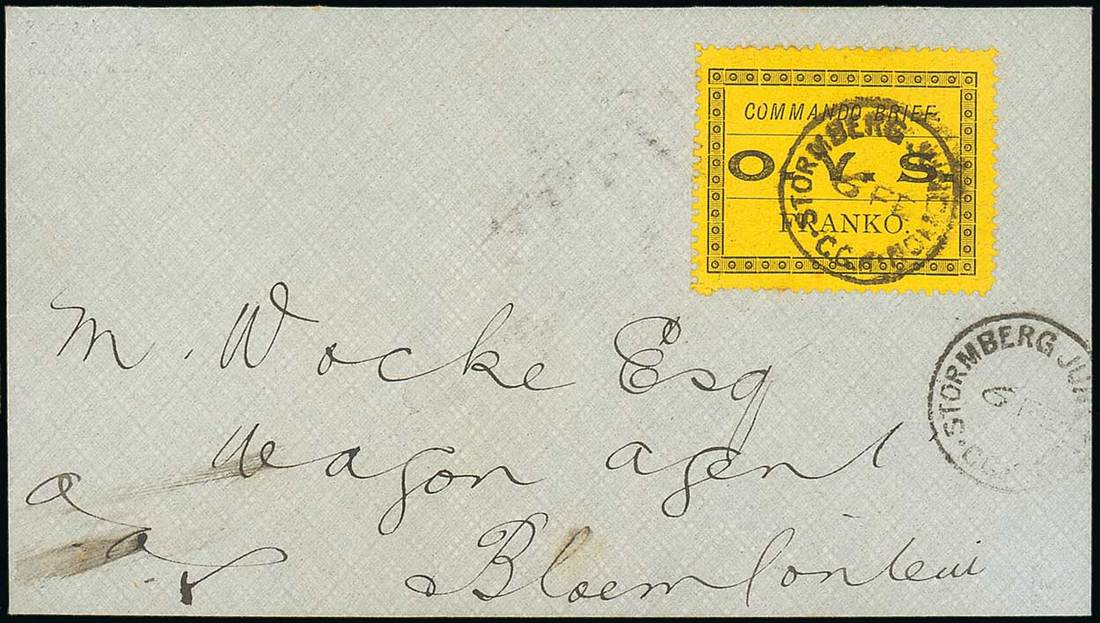 COMMANDO BRIEF.
O. V. S.
FRANKO.
STORMBERG JUNCTION
6 FE
STORMBERG JUN
6
M. Wocke Esq
Wagon agent
Bloemfontein